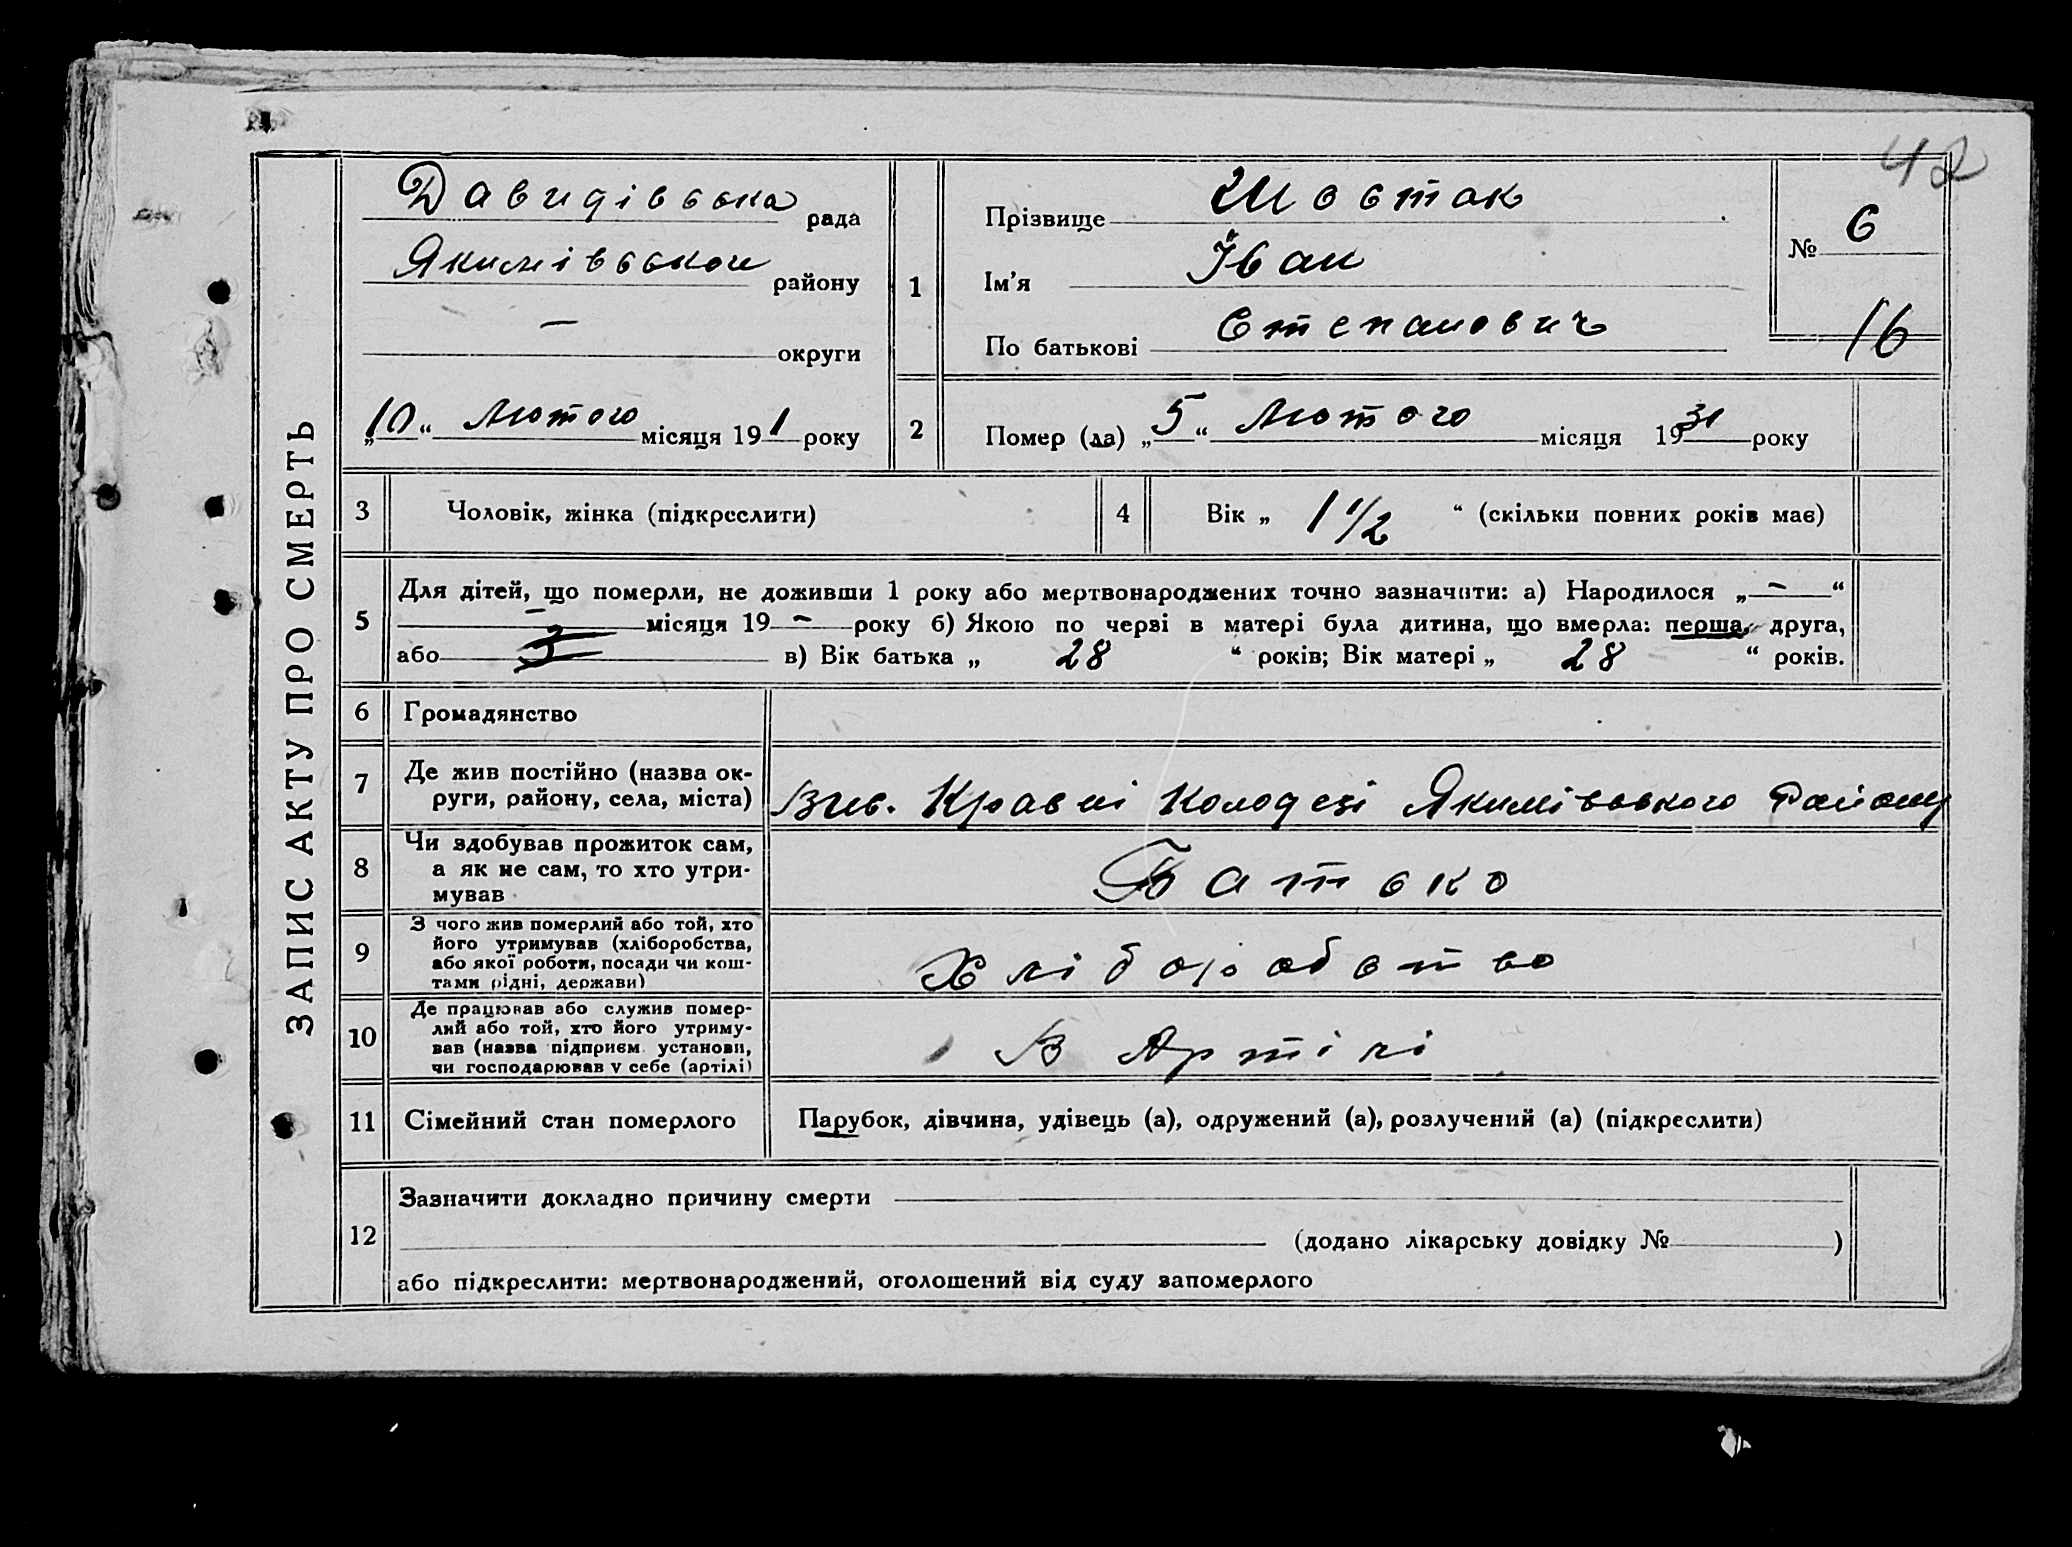 42
ЗАПИС АКТУ ПРО СМЕРТЬ
Давидівська рада
Якимівськои району
— округи
„10“ Лютого місяця 191 року
1
Прізвище Шостак
Ім'я Іван
По батькові Степанович
№ 6
16
2 Помер (ла) „5“ Лютого місяця 1931 року
3 Чоловік, жінка (підкреслити)
4 Вік „ 1 1/2 “ (скільки повних років має)
5 Для дітей, що померли, не доживши 1 року або мертвонароджених точно зазначити: а) Народилося „—“
— місяця 19 — року б) Якою по черзі в матері була дитина, що вмерла: перша, друга,
або 3 в) Вік батька „ 28 “ років; Вік матері „ 28 “ років.
6 Громадянство
7 Де жив постійно (назва ок-
руги, району, села, міста)
Кравчі Колодезі Якимівського Району
8 Чи здобував прожиток сам,
а як не сам, то хто утри-
мував
Батько
9 З чого жив померлий або той, хто
його утримував (хліборобства,
або якої роботи, посади чи кош-
тами рідні, держави)
Хліборобство
10 Де працював або служив помер-
лий або той, хто його утриму-
вав (назва підприєм. установи,
чи господарював у себе (артілі)
В Артілі
11 Сімейний стан померлого
Парубок, дівчина, удівець (а), одружений (а), розлучений (а) (підкреслити)
12 Зазначити докладно причину смерти
(додано лікарську довідку № )
або підкреслити: мертвонароджений, оголошений від суду запомерлого